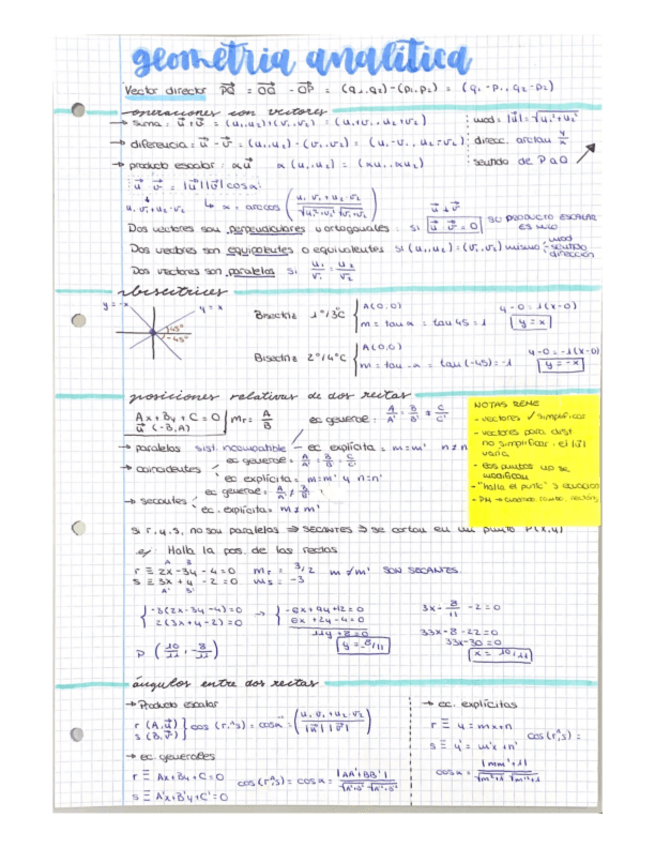 geometría analítica
Vector director PQ = OQ - OP = (q₁,q₂)-(p₁,p₂) = (q₁-p₁, q₂-p₂)
operaciones con vectores
→ suma: u+v = (u₁,u₂)+(v₁,v₂) = (u₁+v₁, u₂+v₂)
mod = |u| = √u₁²+u₂²
→ diferencia: u - v = (u₁,u₂)-(v₁,v₂) = (u₁-v₁, u₂-v₂)
direcc. arctan y/x
→ producto escalar: αu α(u₁,u₂) = (αu₁, αu₂)
sentido de P a Q
u · v = |u||v|cosα
u₁·v₁+u₂·v₂ ↳ α = arccos (u₁·v₁+u₂·v₂ / √u₁²+u₂² √v₁²+v₂²)
u ⊥ v
Dos vectores son perpendiculares u ortogonales: si u · v = 0 SU PRODUCTO ESCALAR ES NULO
Dos vectores son equipolentes o equivalentes si (u₁,u₂) = (v₁,v₂) mismo mod sentido dirección
Dos vectores son paralelos si u₁/v₁ = u₂/v₂
bisectrices
y=-x y=x 45° -45°
Bisectriz 1º/3ºC { A(0,0) y-0=1(x-0)
m = tan α = tan 45 = 1 y=x
Bisectriz 2º/4ºC { A(0,0) y-0=-1(x-0)
m = tan -α = tan(-45) = -1 y=-x
posiciones relativas de dos rectas
Ax+By+C=0 mr= A/B ec general: A/A' = B/B' ≠ C/C'
u (-B,A)
→ paralelas sist. incompatible ec explícita = m=m' n≠n'
→ coincidentes ec general: A/A' = B/B' = C/C'
ec explícita = m=m' y n=n'
→ secantes ec general: A/A' ≠ B/B'
ec. explícita = m≠m'
NOTAS RENE
- vectores ✓ simplificar
- vectores para dist
no simplificar, el |u|
varía
- los puntos no se
modifican
- "halla el punto"
- PM →
Si r y s, no son paralelas ⇒ SECANTES ⇒ se cortan en un punto P(x,y)
ej: Halla la pos. de las rectas
A B
r ≡ 2x-3y-4=0 mr = 3/2 m≠m' SON SECANTES.
s ≡ 3x+y-2=0 ms = -3
A' B'
{ -3(2x-3y-4)=0 → { -6x+9y+12=0 3x-8/11-2=0
2(3x+y-2)=0 6x+2y-4=0 33x-8-22=0
11y+8=0 33x-30=0
P (10/11, -8/11) y=-8/11 x=10/11
ángulos entre dos rectas
→ Producto escalar
r (A,u)
s (B,v) } cos (r,^s) = cosα = (u₁·v₁+u₂·v₂ / |u||v|)
→ ec. generales
r ≡ Ax+By+C=0
s ≡ A'x+B'y+C'=0
cos(r,^s) = cosα = |AA'+BB'| / √A²+B² √A'²+B'²
→ ec. explícitas
r ≡ y=mx+n
s ≡ y'=m'x+n'
cos(r,^s)=
cosα = |mm'+1| / √m²+1 √m'²+1